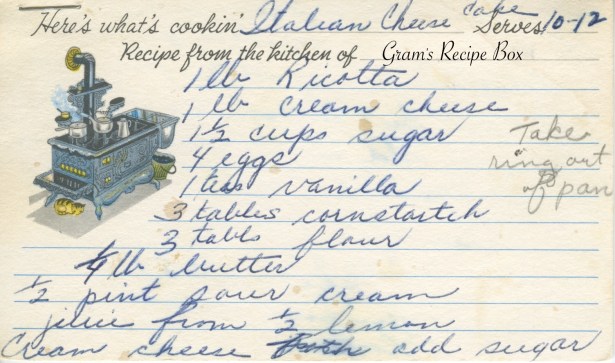 Here's what's cookin' Italian Cheese cake Serves 10-12
Recipe from the kitchen of Gram's Recipe Box
1 lb Ricotta
1 lb cream cheese
1 1/2 cups sugar
4 eggs
1 teas vanilla
3 tables cornstartch
3 tabls flour
1/4 lb butter
1/2 pint sour cream
juice from 1/2 lemon
Cream cheese add sugar
Take
ring out
of pan